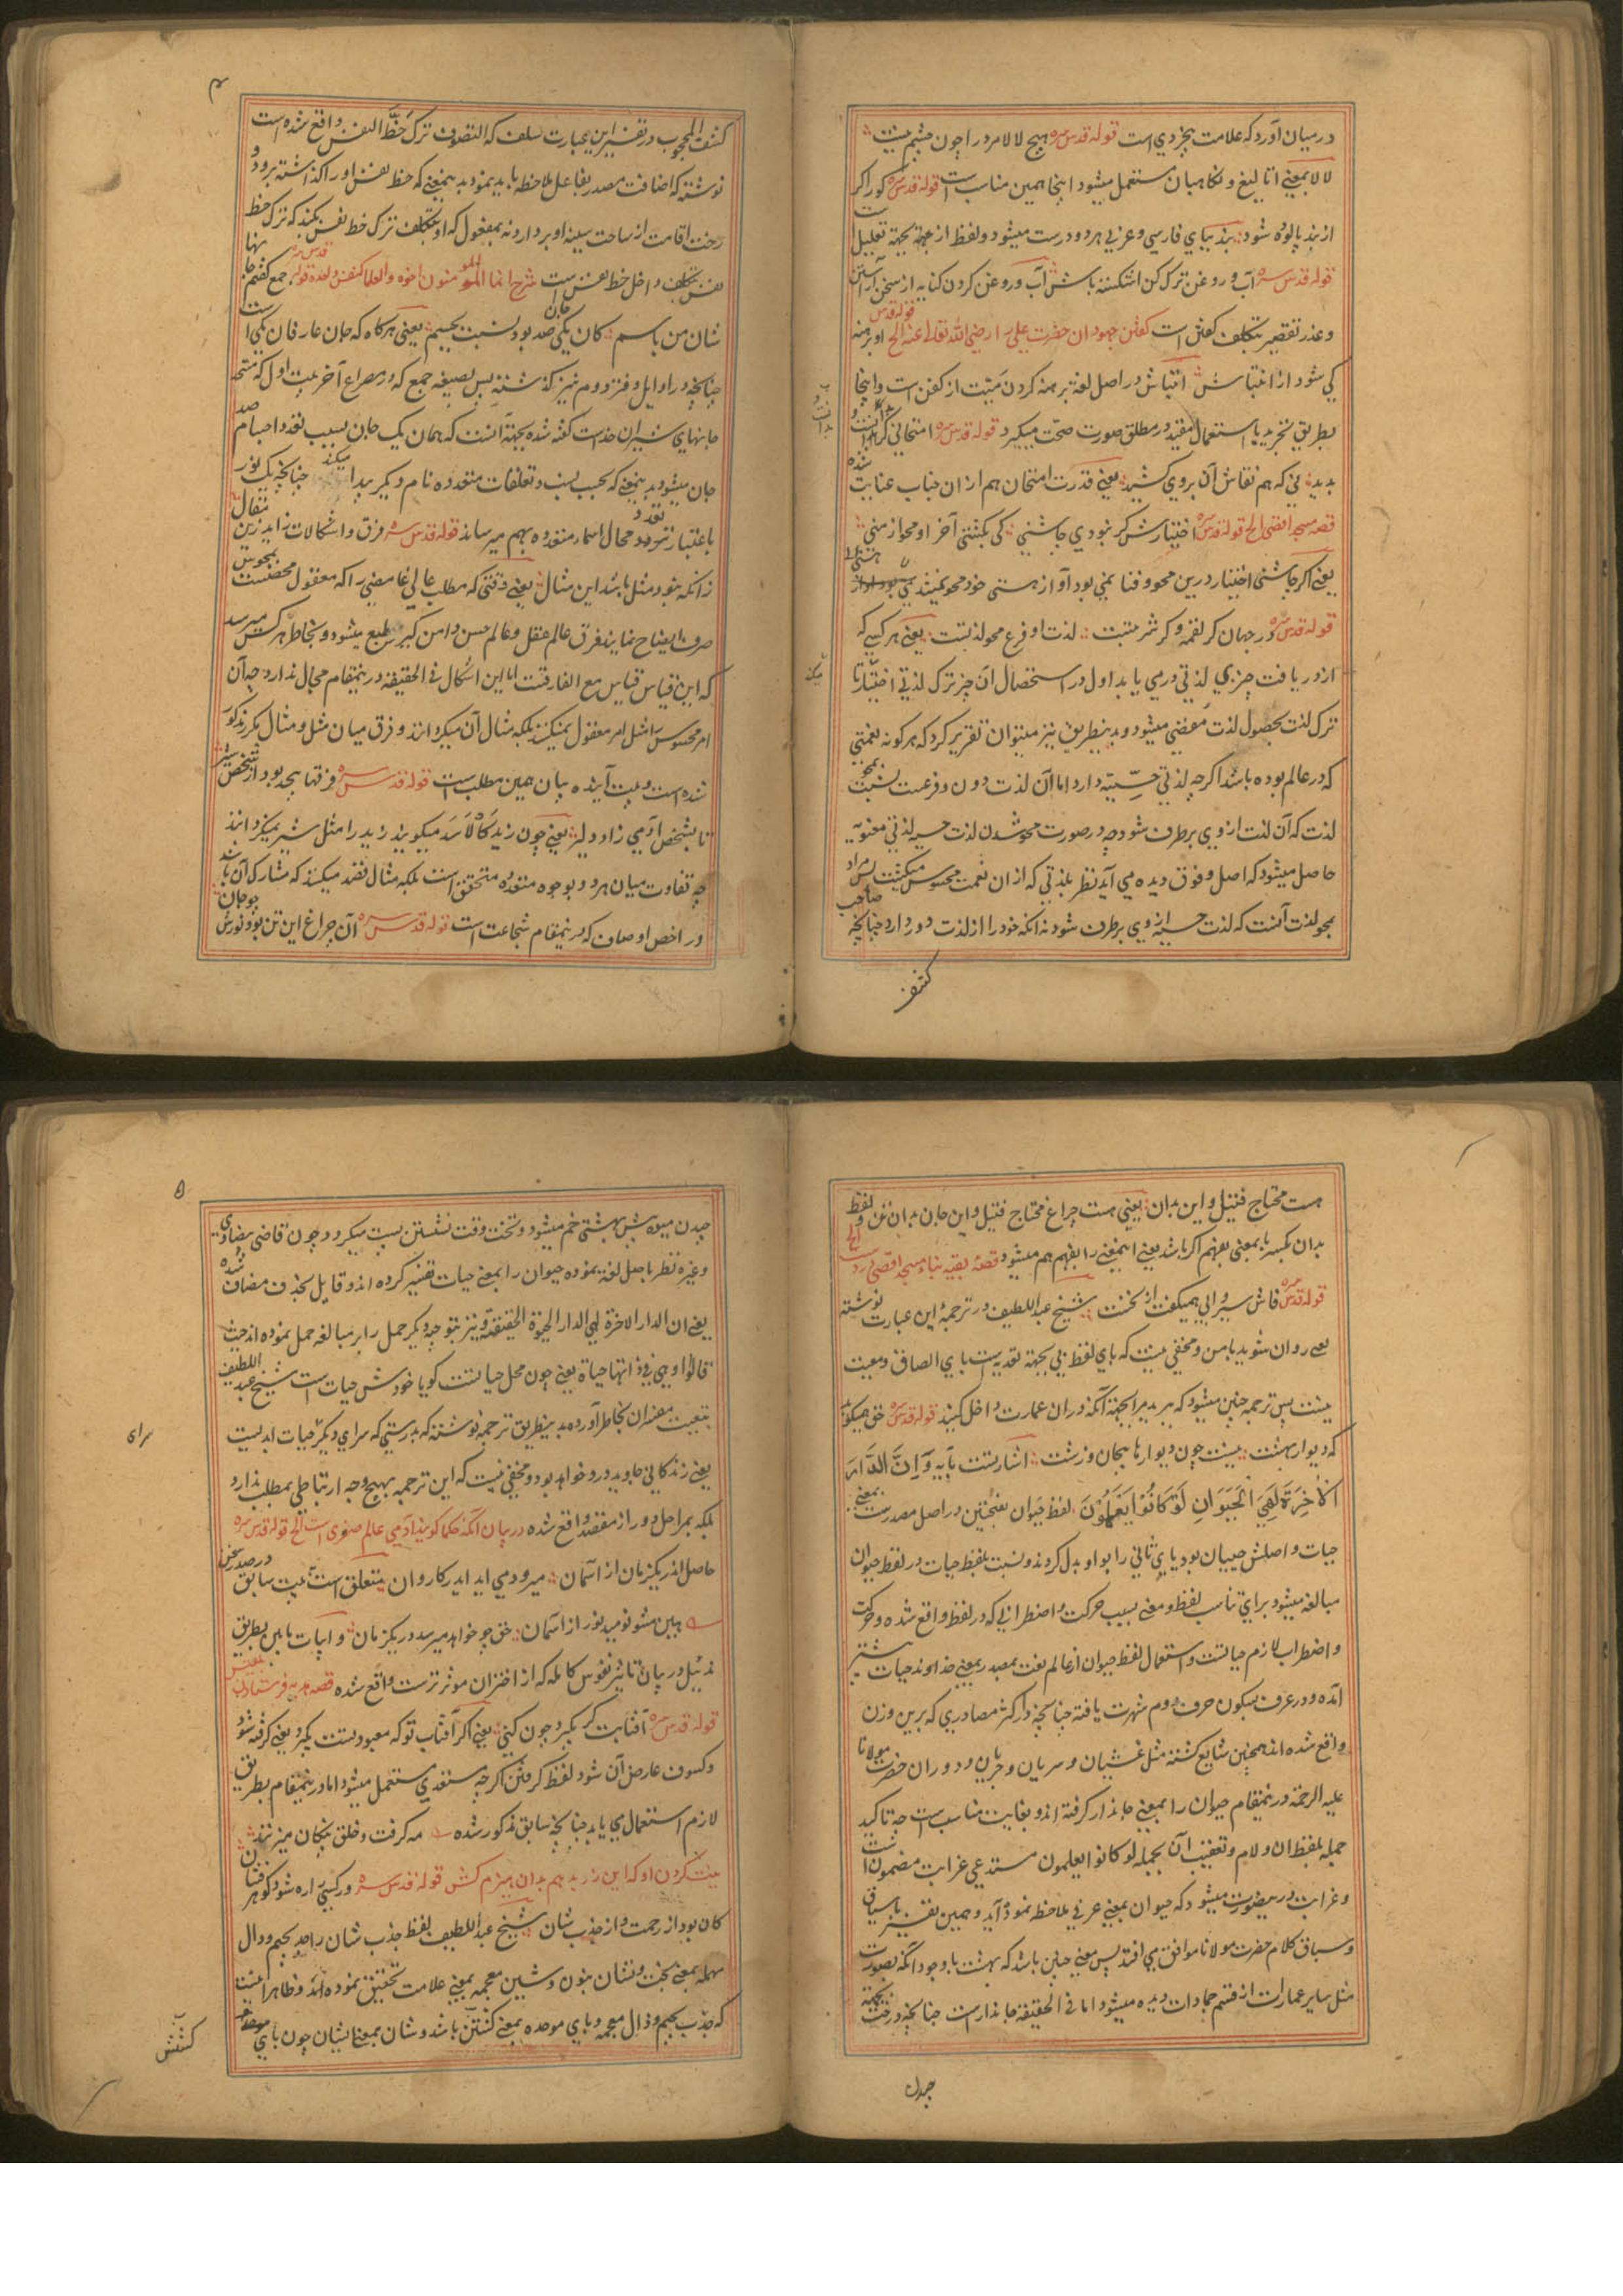 در میان آورد که علامت بیخردی است قوله قدس سره هیچ لالا مرد را چون چشم نیست
لالا بمعنی اتالیغ و نکاهبان مستعمل میشود اینجا همین مناسب است قوله قدس سره کو را کر
از بند پالوده شود بند بیای فارسی و عربی هر دو درست میشود و لفظ از بجهة تعلیل است
قوله قدس سره آب و روغن ترک کن اشکسته باش آب و روغن کردن کنایه از سخن آراستن
و عذر تقصیر بتکلف کفتن است کفتن جهود ان حضرت علی را رضی الله تعالی عنه الخ قوله قدس او برهنه
کی شود از افتباش افتباش در اصل لغة برهنه کردن میت از کفن است و اینجا
بطریق تجرید یا استعمال مقید در مطلق صورت صحت میکیرد قوله قدس سره امتحانی کر
بدید نی که هم نقاش آن بروی کشید یعنی قدرت امتحان هم از ان جناب عنایت شده
قصه مسجد اقصی الخ قوله قدس سره اختیارش کر نبودی چاشنی کی بکشتی آخر او محو از منی
یعنی اکر چاشنی اختیار درین محو و فنا نمی بود او از هستی خود محو نمیشد
قوله قدس سره در جهان کر لقمه و کر شربتست لذت او فرع محو لذتست یعنی هر کسی که
از دریافت چیزی لذتی در می یابد اول در استحصال آن چیز ترک لذتی اختیار تا
ترک لذت بحصول لذت مفضی میشود و بدینطریق نیز میتوان تقریر کرد که هر کونه نعمتی
که در عالم بوده باشد اکرچه لذتی حسیته دارد اما آن لذت دون و فرعست بنسبت بمحو
لذت که آن لذت از وی برطرف شود چه در صورت محو شدن لذت حسیه لذتی معنویه
حاصل میشود که اصل و فوق دیده می آید نظر بلذتی که از ان نعمت محسوس میکشت پس مراد
بمحو لذت آنست که لذت حسیه از وی برطرف شود نه آنکه خود را از لذت دور دارد چنانچه صاحب
کشف
۴
کشف المحجوب در تفسیر این عبارت سلف که التصوف ترک حظ النفس واقع شده است
نوشته که اضافت مصدر بفاعل ملاحظه باید نمود بدینمعنی که حظ نفس او را کذاشته برود و
رخت اقامت از ساحت سینه او بردارد نه بمفعول که او بتکلف ترک حظ نفس بکند که ترک حظ
نفس بتکلف داخل حظ نفس است شرح انما المؤمنون اخوة والعلماء کنفس واحدة قوله قدس سره جمع کفتم جانها
شان من باسم کان یکی جان صد بود نسبت بجسم یعنی هر کاه که جان عارفان یکی است
چنانچه در اوایل دفتر دوم نیز کذشته پس بصیغه جمع که در مصراع آخر بیت اول که متحد
جانهای شیران خداست کفته شده بجهة آنست که همان یک جان بسبب تعدد اجسام صد
جان میشود بدینمعنی که بحسب نسب و تعلقات متعدده نام دیکر پیدا میکند چنانچه یک نور
باعتبار تعدد محال اسماء متعدده بهم میرساند قوله قدس سره فرق و اشکالات زاید زین مقال
زانکه نبود مثل باشد این مثال یعنی وقتی که مطلب عالی غامضی را که معقول محضست بمحوس
صرف ایضاح نمایند فرق عالم عقل و عالم حس دامن کیر طبع میشود و بخاطر هر کس میرسد
که این قیاس قیاس مع الفارقست اما این اشکال فی الحقیقه درینمقام مجال ندارد چه آن
امر محسوس را مثل امر معقول نمیکنند بلکه مثال آن میکردانند و فرق میان مثل و مثال مکرر مذکور
شده است و بیت آینده بیان همین مطلب است قوله قدس سره فرقها بیحد بود از شخص شیر
تا بشخص آدمی زاد دلیر یعنی چون زید کالاسد میکویند زید را مثل شیر نمیکردانند
چه تفاوت میان هر دو بوجوه متعدده متحقق است بلکه مثال قصد میکنند که مشارک آن باشد
در اخص اوصاف که درینمقام شجاعت است قوله قدس سره آن چراغ این تن بود نورش چو جان
هست محتاج فتیل و این بدان یعنی هست چراغ محتاج فتیل و این جان بدان تن و لفظ
بدان بکسر با بمعنی بفهم اکر باشد یعنی اینمعنی را بفهم هم میشود قصه بقیه بناء مسجد اقصی الخ
قوله قدس سره فاش سیروا بی همیکفت از نخست شیخ عبد اللطیف در ترجمه این عبارت نوشته
یعنی روان شوید با من و مخفی نیست که بای لفظ بی بجهة تعدیه است بای الصاق و معیت
نیست پس ترجمه چنین میشود که ببرید مرا بجهة آنکه در ان عمارت داخل کنید قوله قدس سره حق همیکوید
که دیوار بهشت نیست چون دیوارها بیجان و زشت اشارتست بآیه وَاِنَّ الدَّارَ
الْاٰخِرَةَ لَهِیَ الْحَیَوَانِ لَوْ کَانُوْا یَعْلَمُوْنَ لفظ حیوان بفتحتین در اصل مصدرست بمعنی
حیات و اصلش حییان بود یای ثانی را بواو بدل کردند و نسبت بلفظ حیات در لفظ حیوان
مبالغه میشود برای تناسب لفظ و معنی بسبب حرکت و اضطرابی که در لفظ واقع شده و حرکت
و اضطراب لازم حیاتست و استعمال لفظ حیوان از عالم نعت بمصدر بمعنی خداوند حیات بیشتر
آمده و در عرف بسکون حرف دوم شهرت یافته چنانچه در اکثر مصادری که برین وزن
واقع شده اند همچنین شایع کشته مثل غشیان و سریان و جریان و دوران حضرت مولانا
علیه الرحمة درینمقام حیوان را بمعنی جاندار کرفته اند و بغایت مناسب است چه تاکید
جمله بلفظ ان و لام و تعقیب آن بجمله لو کانوا یعلمون مستدعی غرابت مضمون است
و غرابت درینصورت میشود که حیوان بمعنی عرفی ملاحظه نموده آید و همین تفسیر باسیاق
و سباق کلام حضرت مولانا موافق می افتد پس معنی چنین باشد که بهشت با وجود آنکه بصورت
مثل سایر عمارات از قسم جمادات دیده میشود اما فی الحقیقه جاندارست چنانچه درخت بجهة
چیدن
۵
چیدن میوه پیش بهشتی خم میشود و تخت وقت نشستن پست میکردد و چون قاضی بیضاوی
وغیره نظر باصل لغة نموده حیوان را بمعنی حیات تفسیر کرده اند و قایل بحذف مضاف شده
یعنی ان الدار الاخرة لهی الدار الحیوة الحقیقیة و نیز بتوجیه دیکر حمل را بر مبالغه حمل نموده اند حیث
قالوا او هی فی ذاتها حیاة یعنی چون محل حیاتست کویا خودش حیات است شیخ عبد اللطیف
بتبعیت مفسران بخاطر آورده بدینطریق ترجمه نوشته که بدرستی که سرای دیکر حیات ابدیست
سرای
یعنی زندکانی جاوید درو خواهد بود و مخفی نیست که این ترجمه بهیچ وجه ارتباطی بمطلب ندارد
بلکه بمراحل دور از مقصد واقع شده در بیان آنکه حکما کویند آدمی عالم صغری است الخ قوله قدس سره
حاصل اندر یکزمان از آسمان میرود می اید ایدر کاروان متعلق است به بیت سابق
هین مشو نومید نور از آسمان حق چو خواهد میرسد در یکزمان و ابیات مابین بطریق
تذییل در بیان تاثیر نفوس کامله که از اختران موثرترست واقع شده قصه هدیه فرستادن بلقیس
قوله قدس سره آفتابت کر بکیرد چون کنی یعنی اکر آفتاب تو که معبود تست بکیرد یعنی کرفته شود
و کسوف عارض آن شود لفظ کرفتن اکرچه متعدی مستعمل میشود اما درینمقام بطریق
لازم استعمال می یابد چنانچه سابق مذکور شده مه کرفت و خلق پنکان میزنند
بیت کردن او که این زر بدهم بدان هیزم کش قوله قدس سره ور کسی را ره شود کو سر فشان
کان بود از رحمت و از جذب شان شیخ عبد اللطیف لفظ جذب شان را جد بجیم و دال
مهمله بمعنی بخت و نشان بنون و شین معجمه بمعنی علامت تحقیق نموده اند و ظاهرا اینست
که جذب بجیم و ذال معجمه و بای موحده بمعنی کشش باشد و شان بمعنی ایشان چون بای موحده
کشش